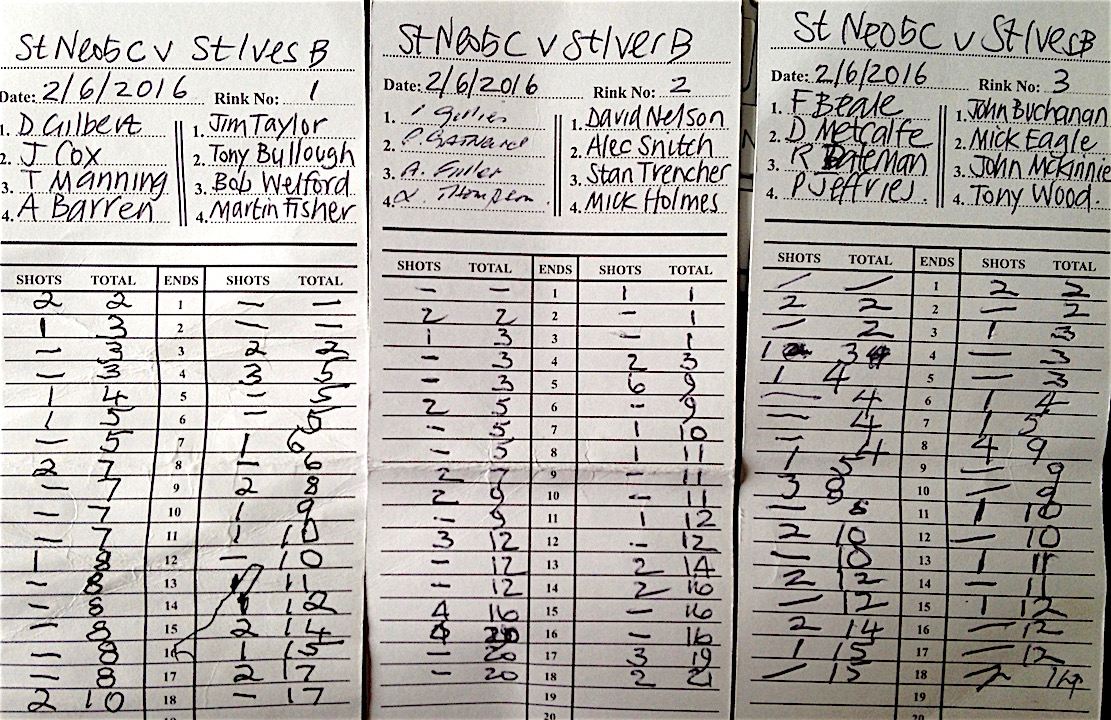 St Neots C v St Ives B
Date: 2/6/2016 Rink No: 1
1. D Gilbert 1. Jim Taylor
2. J Cox 2. Tony Bullough
3. T Manning 3. Bob Welford
4. A Barren 4. Martin Fisher
SHOTS TOTAL ENDS SHOTS TOTAL
2 2 1 — —
1 3 2 — —
— 3 3 2 2
— 3 4 3 5
1 4 5 — 5
1 5 6 — 5
— 5 7 1 6
2 7 8 — 6
— 7 9 2 8
— 7 10 1 9
— 7 11 1 10
1 8 12 — 10
— 8 13 1 11
— 8 14 1 12
— 8 15 2 14
— 8 16 1 15
— 8 17 2 17
2 10 18 — 17
St Neots C v St Ives B
Date: 2/6/2016 Rink No: 2
1. 1. David Nelson
2. 2. Alec Snitch
3. A. Fuller 3. Stan Trencher
4. Thompson 4. Mick Holmes
SHOTS TOTAL ENDS SHOTS TOTAL
— — 1 1 1
2 2 2 — 1
1 3 3 — 1
— 3 4 2 3
— 3 5 6 9
2 5 6 — 9
— 5 7 1 10
— 5 8 1 11
2 7 9 — 11
2 9 10 — 11
— 9 11 1 12
3 12 12 — 12
— 12 13 2 14
— 12 14 2 16
4 16 15 — 16
4 20 16 — 16
— 20 17 3 19
— 20 18 2 21
19
20
St Neots C v St Ives B
Date: 2/6/2016 Rink No: 3
1. F Beale 1. John Buchanan
2. D Metcalfe 2. Mick Eagle
3. R Bateman 3. John McKinnie
4. P Jeffries 4. Tony Wood.
SHOTS TOTAL ENDS SHOTS TOTAL
— — 1 2 2
2 2 2 — 2
— 2 3 1 3
1 3 4 — 3
1 4 5 — 3
— 4 6 1 4
— 4 7 1 5
— 4 8 4 9
1 5 9 — 9
3 8 10 — 9
— 8 11 1 10
2 10 12 — 10
— 10 13 1 11
2 12 14 — 11
— 12 15 1 12
2 14 16 — 12
1 15 17 — 12
— 15 18
19
20